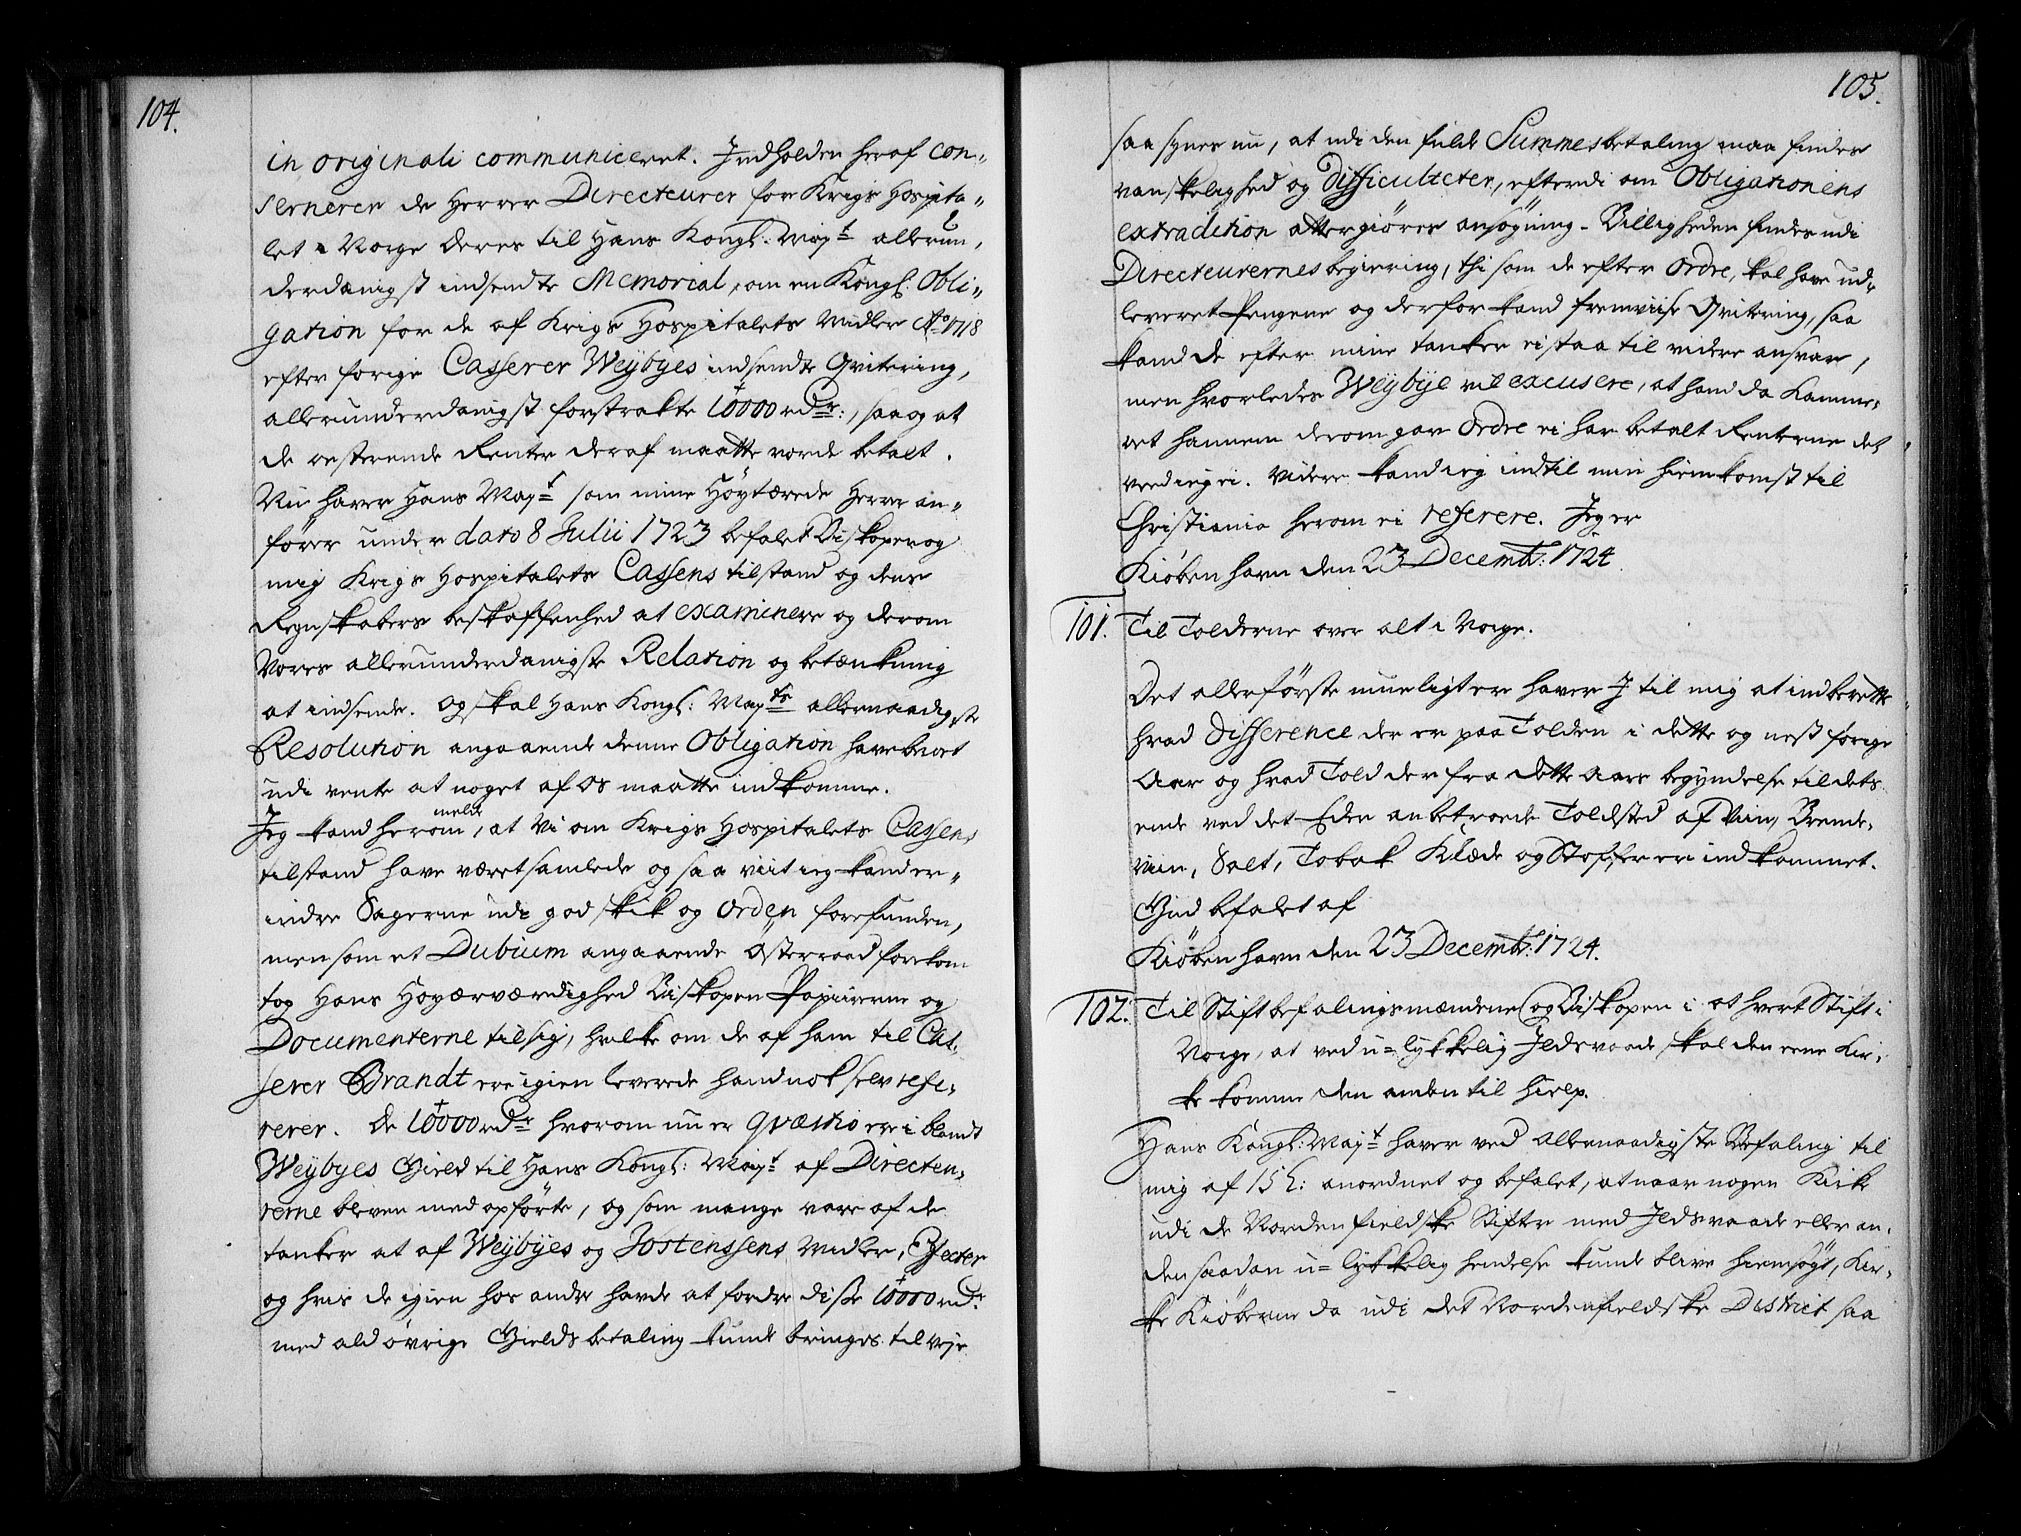 104.
in originali communiceret. Indholden heraf con-
sernerer de Herrer Directeurer for Krigs Hospita-
let i Norge deres til Hans Kongl: Mayt allerun,
derdanigst indsendte Memorial, om en Kongl: Obli-
gation for de af Krigs Hospitalets Midler Ao 1718
efter forige Casserer Weybyes indsendte Qvitering,
allerunderdanigst forstrakte 10000 rdr:, saa og at
de resterende Renter deraf maatte vorde betalt.
Nu haver Hans Mayt som mine Høytærede Herrer an-
fører under dato 8 Julii 1723 befalet Biskopen og
mig Krigs Hospitalets Cassens tilstand og dens
Regnskabers beskaffenhed at examinere og derom
Vores allerunderdanigste Relation og betænkning
at indsende. og skal Hans Kongl: Mayts allernaadigste
Resolution angaaende denne Obligation have beroet
udi vente at noget af os maatte indkomme.
Jeg kand herom melde, at Vi om Krigs Hospitalets Cassens
tilstand have været samlede og saa viit ieg kand er-
indre Sagerne udi god skik og Orden forefunden,
men som et Dubium angaaende Østerraad forekom
tog Hans Høyærværdighed Biskopen Papiirerne og
Documenterne til sig, hvilke om de af ham til Cas-
serer Brandt ere igien leverede hand nok self refe-
rerer. De 10000 rdr hvorom nu er qvæstio ere i blandt
Weybyes Gield til Hans Kongl: Mayt af Directeu-
rerne bleven med opførte, og som mange vare af de
tanker at af Weybyes og Jostenssens Midler, Effecter
og hvis de igien hos andre havde at fordre disse 10000 rdr
med ald øvrige Gields betaling kunde bringes til veje
105.
saa synes nu, at udi den fulde Summes betaling maa findes
vanskelighed og difficulteter, efterdi om Obligationens
extradition attergiøres ansøgning. Billigheden findes udi
Directeurernes begiering, thi som de efter Ordre, skal have ud-
leveret Pengene og derfor kand fremviise Qvitering, saa
kand de efter mine tanker ei staa til videre ansvar,
men hvorledes Weybye vil excusere, at hand da Kamme-
ret hannem derom gav Ordre ei har betalt Renterne det
veed ieg ei. Videre kand ieg indtil min hiemkomst til
Christiania herom ei referere. Jeg er
Kiøbenhavn den 23 Decembr: 1724.
101. Til Tolderne over alt i Norge.
Det allerførste mueligt er haver I til mig at indberette
hvad Difference der er paa Tolden i dette og nest forige
Aar og hvad Told der fra dette Aars begyndelse til dets
ende ved det Eder anbetroede Toldsted af Viin, Brende-
viin, Salt, Tobak Klæde og Stoffer er indkommet.
Gud befalet af
Kiøbenhavn den 23 Decembr: 1724.
102. Til Stiftbefalingsmændene og Biskopen i et hvert Stift i
Norge, at ved u-lykkelig Ildsvaade skal den eene Kir-
ke komme den anden til hielp.
Hans Kongl: Mayt haver ved allernaadigste Befaling til
mig af 15 h: anordnet og befalet, at naar nogen Kirke
udi de Nordenfieldske Stifter med Ildsvaade eller an-
den saadan u-lykkelig hendelse kunde blive hiemsøgt, Kir-
ke Kiøberne da udi det Nordenfieldske District saa